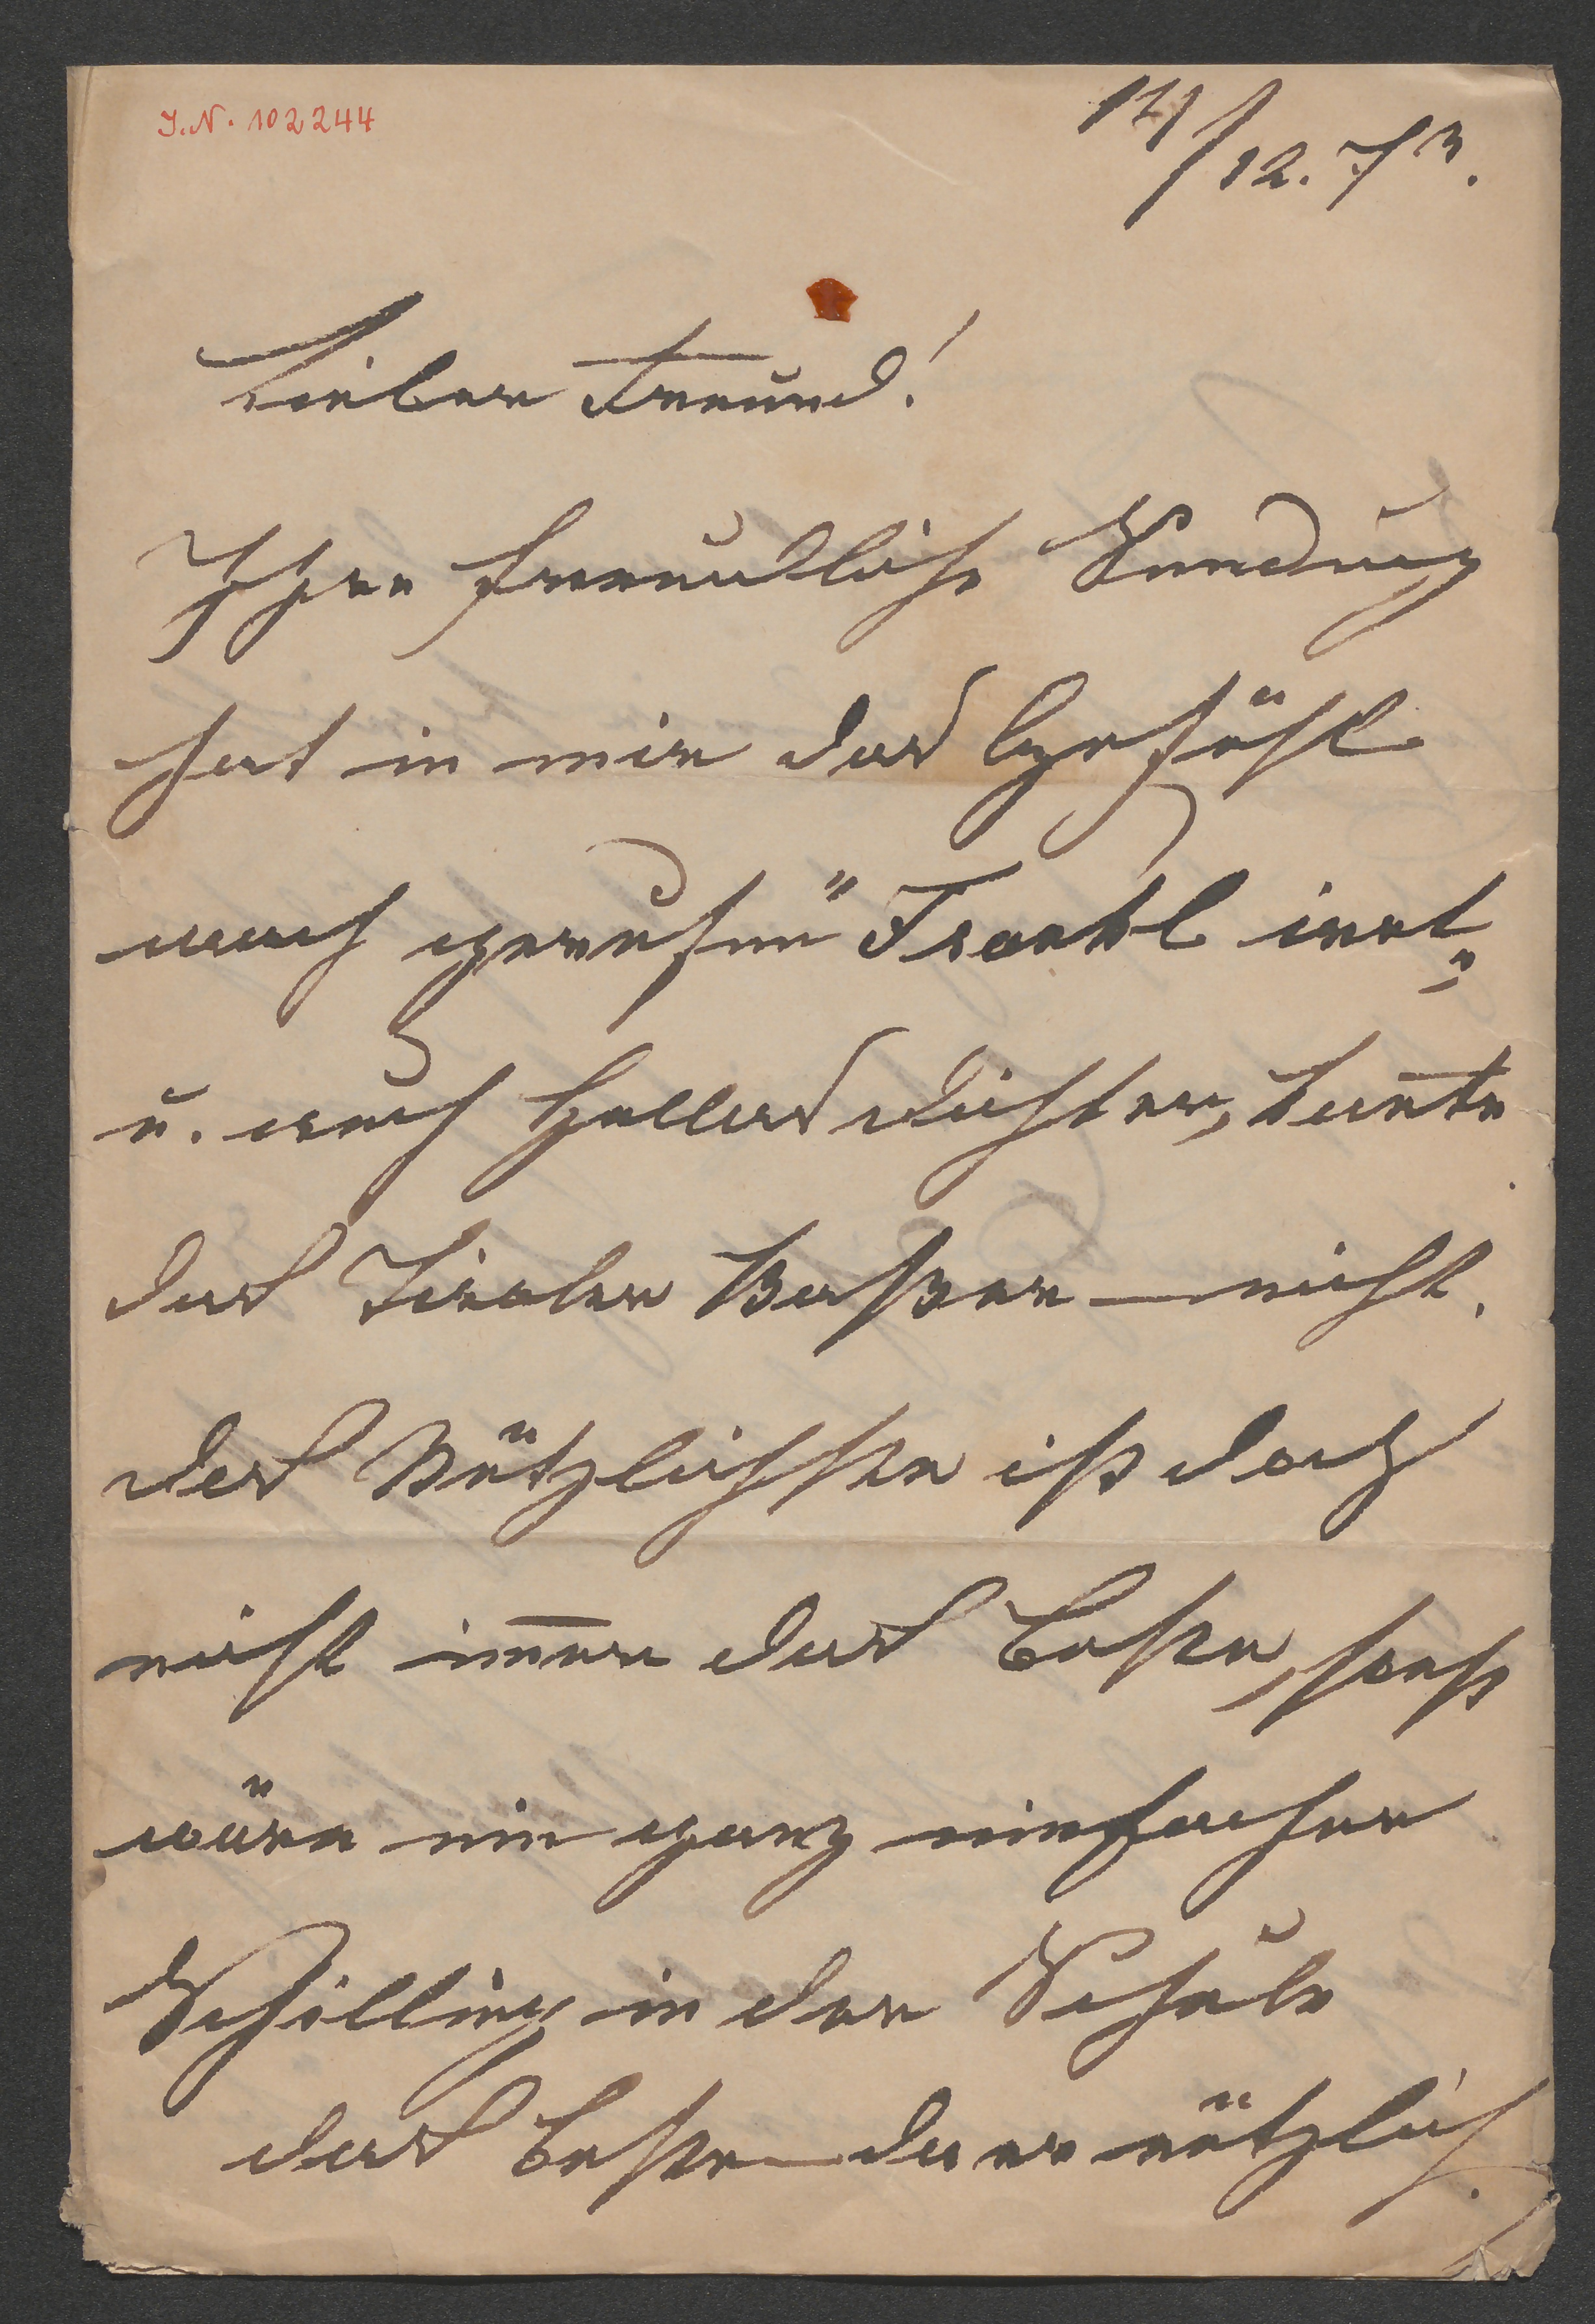 J.N. 102244
14/12. 73.
Lieber Freund!
Ihre freundliche Sendung
hat in mir das Gefühl
wach gerufen "Frankl irrt"
u. auch Hellas Dichter, kante
das Tiroler Wasser – nicht.
Das Nützlichste ist doch
nicht im̅er das Beste, sonst
wäre ein ganz einfacher
Schilling in der Schule
das Beste – da er nützlich